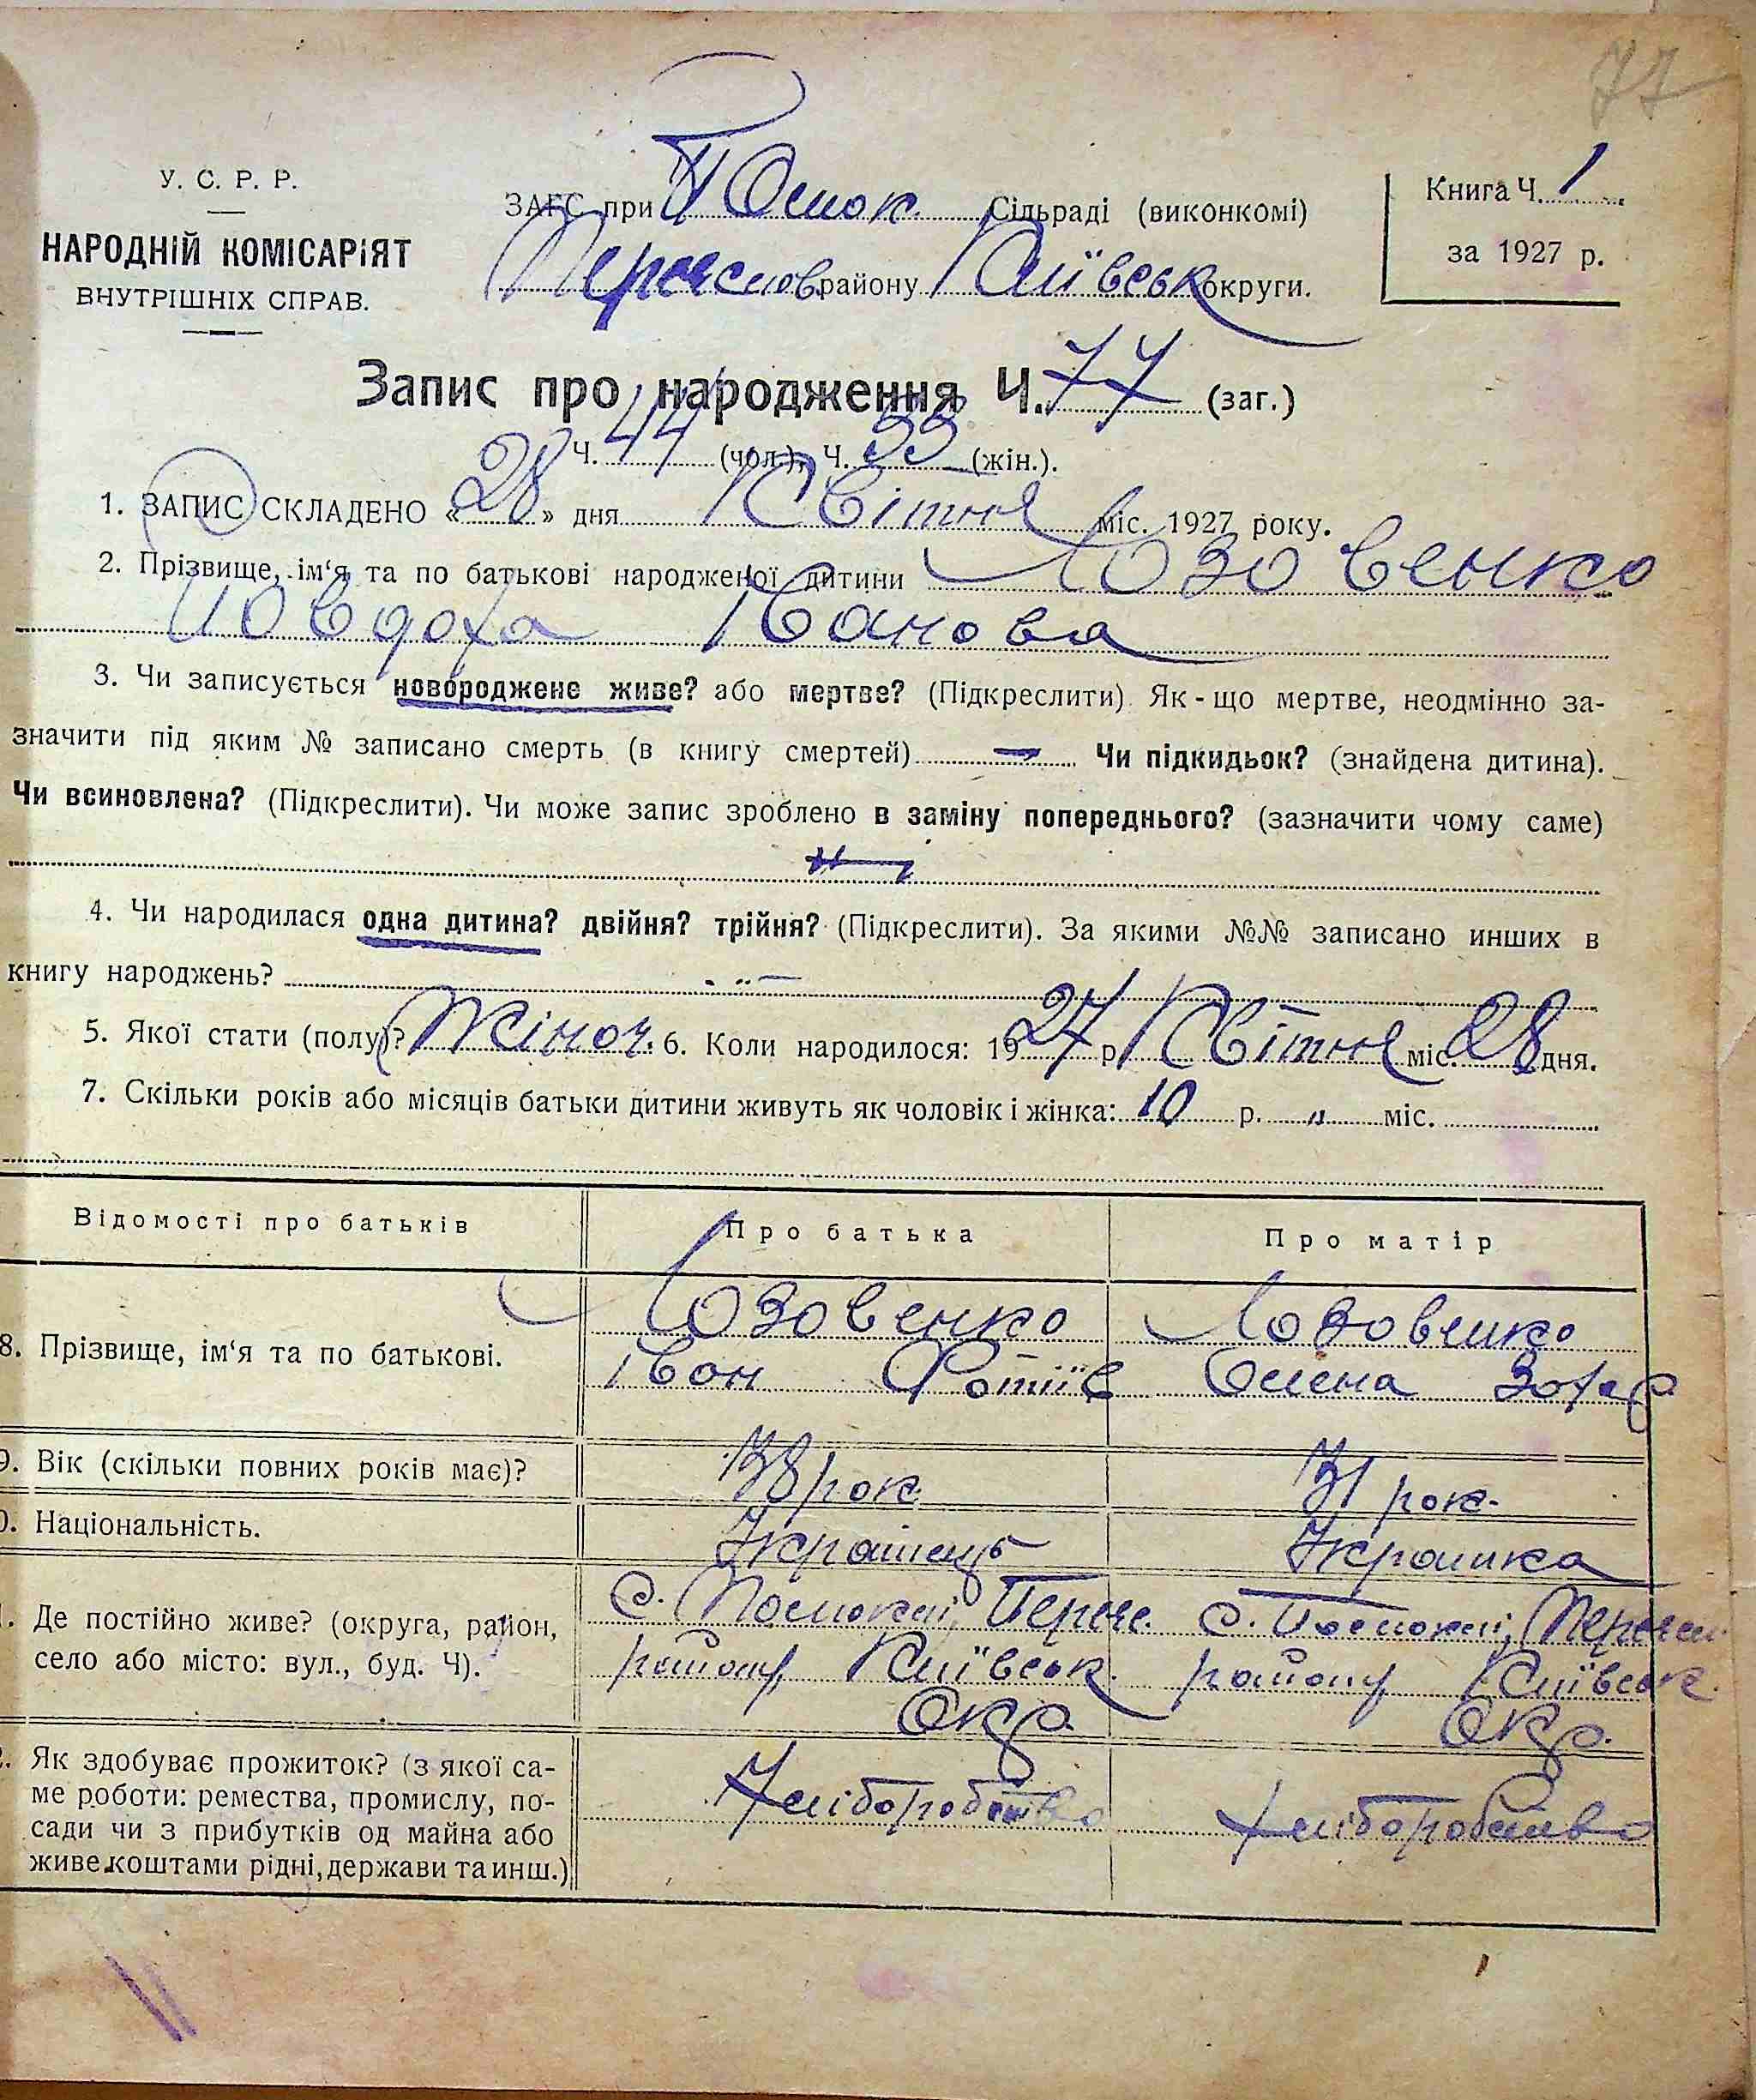 77
У. С. Р. Р.
НАРОДНІЙ КОМІСАРІЯТ
ВНУТРІШНІХ СПРАВ.
ЗАГС при Сільраді (виконкомі)
Переяслов району Київськ округи.
Книга Ч. 1
за 1927 р.
Запис про народження Ч. 77 (заг.)
Ч. 44 (чол.), Ч. 33 (жін.).
1. ЗАПИС СКЛАДЕНО «28» дня Квітня міс. 1927 року.
2. Прізвище, ім‘я та по батькові народженої дитини Лозовенко
Ювдоха Іванова
3. Чи записується новороджене живе? або мертве? (Підкреслити) Як-що мертве, неодмінно за-
значити під яким № записано смерть (в книгу смертей) — Чи підкидьок? (знайдена дитина).
Чи всиновлена? (Підкреслити). Чи може запис зроблено в заміну попереднього? (зазначити чому саме)
4. Чи народилася одна дитина? двійня? трійня? (Підкреслити). За якими №№ записано инших в
книгу народжень? „ —
5. Якої стати (полу)? Жіноч. 6. Коли народилося: 1927 р. Квітня міс. 28 дня.
7. Скільки років або місяців батьки дитини живуть як чоловік і жінка: 10 р. „ міс.
Відомості про батьків Про батька Про матір
8. Прізвище, ім‘я та по батькові. Лозовенко Лозовенко
Іван Фотіїв Олена Захар
9. Вік (скільки повних років має)? 38 рок. 31 рок.
0. Національність. Українець Українка
. Де постійно живе? (округа, район, с. Перея. с. Переясл.
село або місто: вул., буд. Ч). району Київськ. району Київськ.
Окр. Окр.
. Як здобуває прожиток? (з якої са-
ме роботи: ремества, промислу, по- Хліборобство Хліборобство
сади чи з прибутків од майна або
живе коштами рідні, держави та инш.)